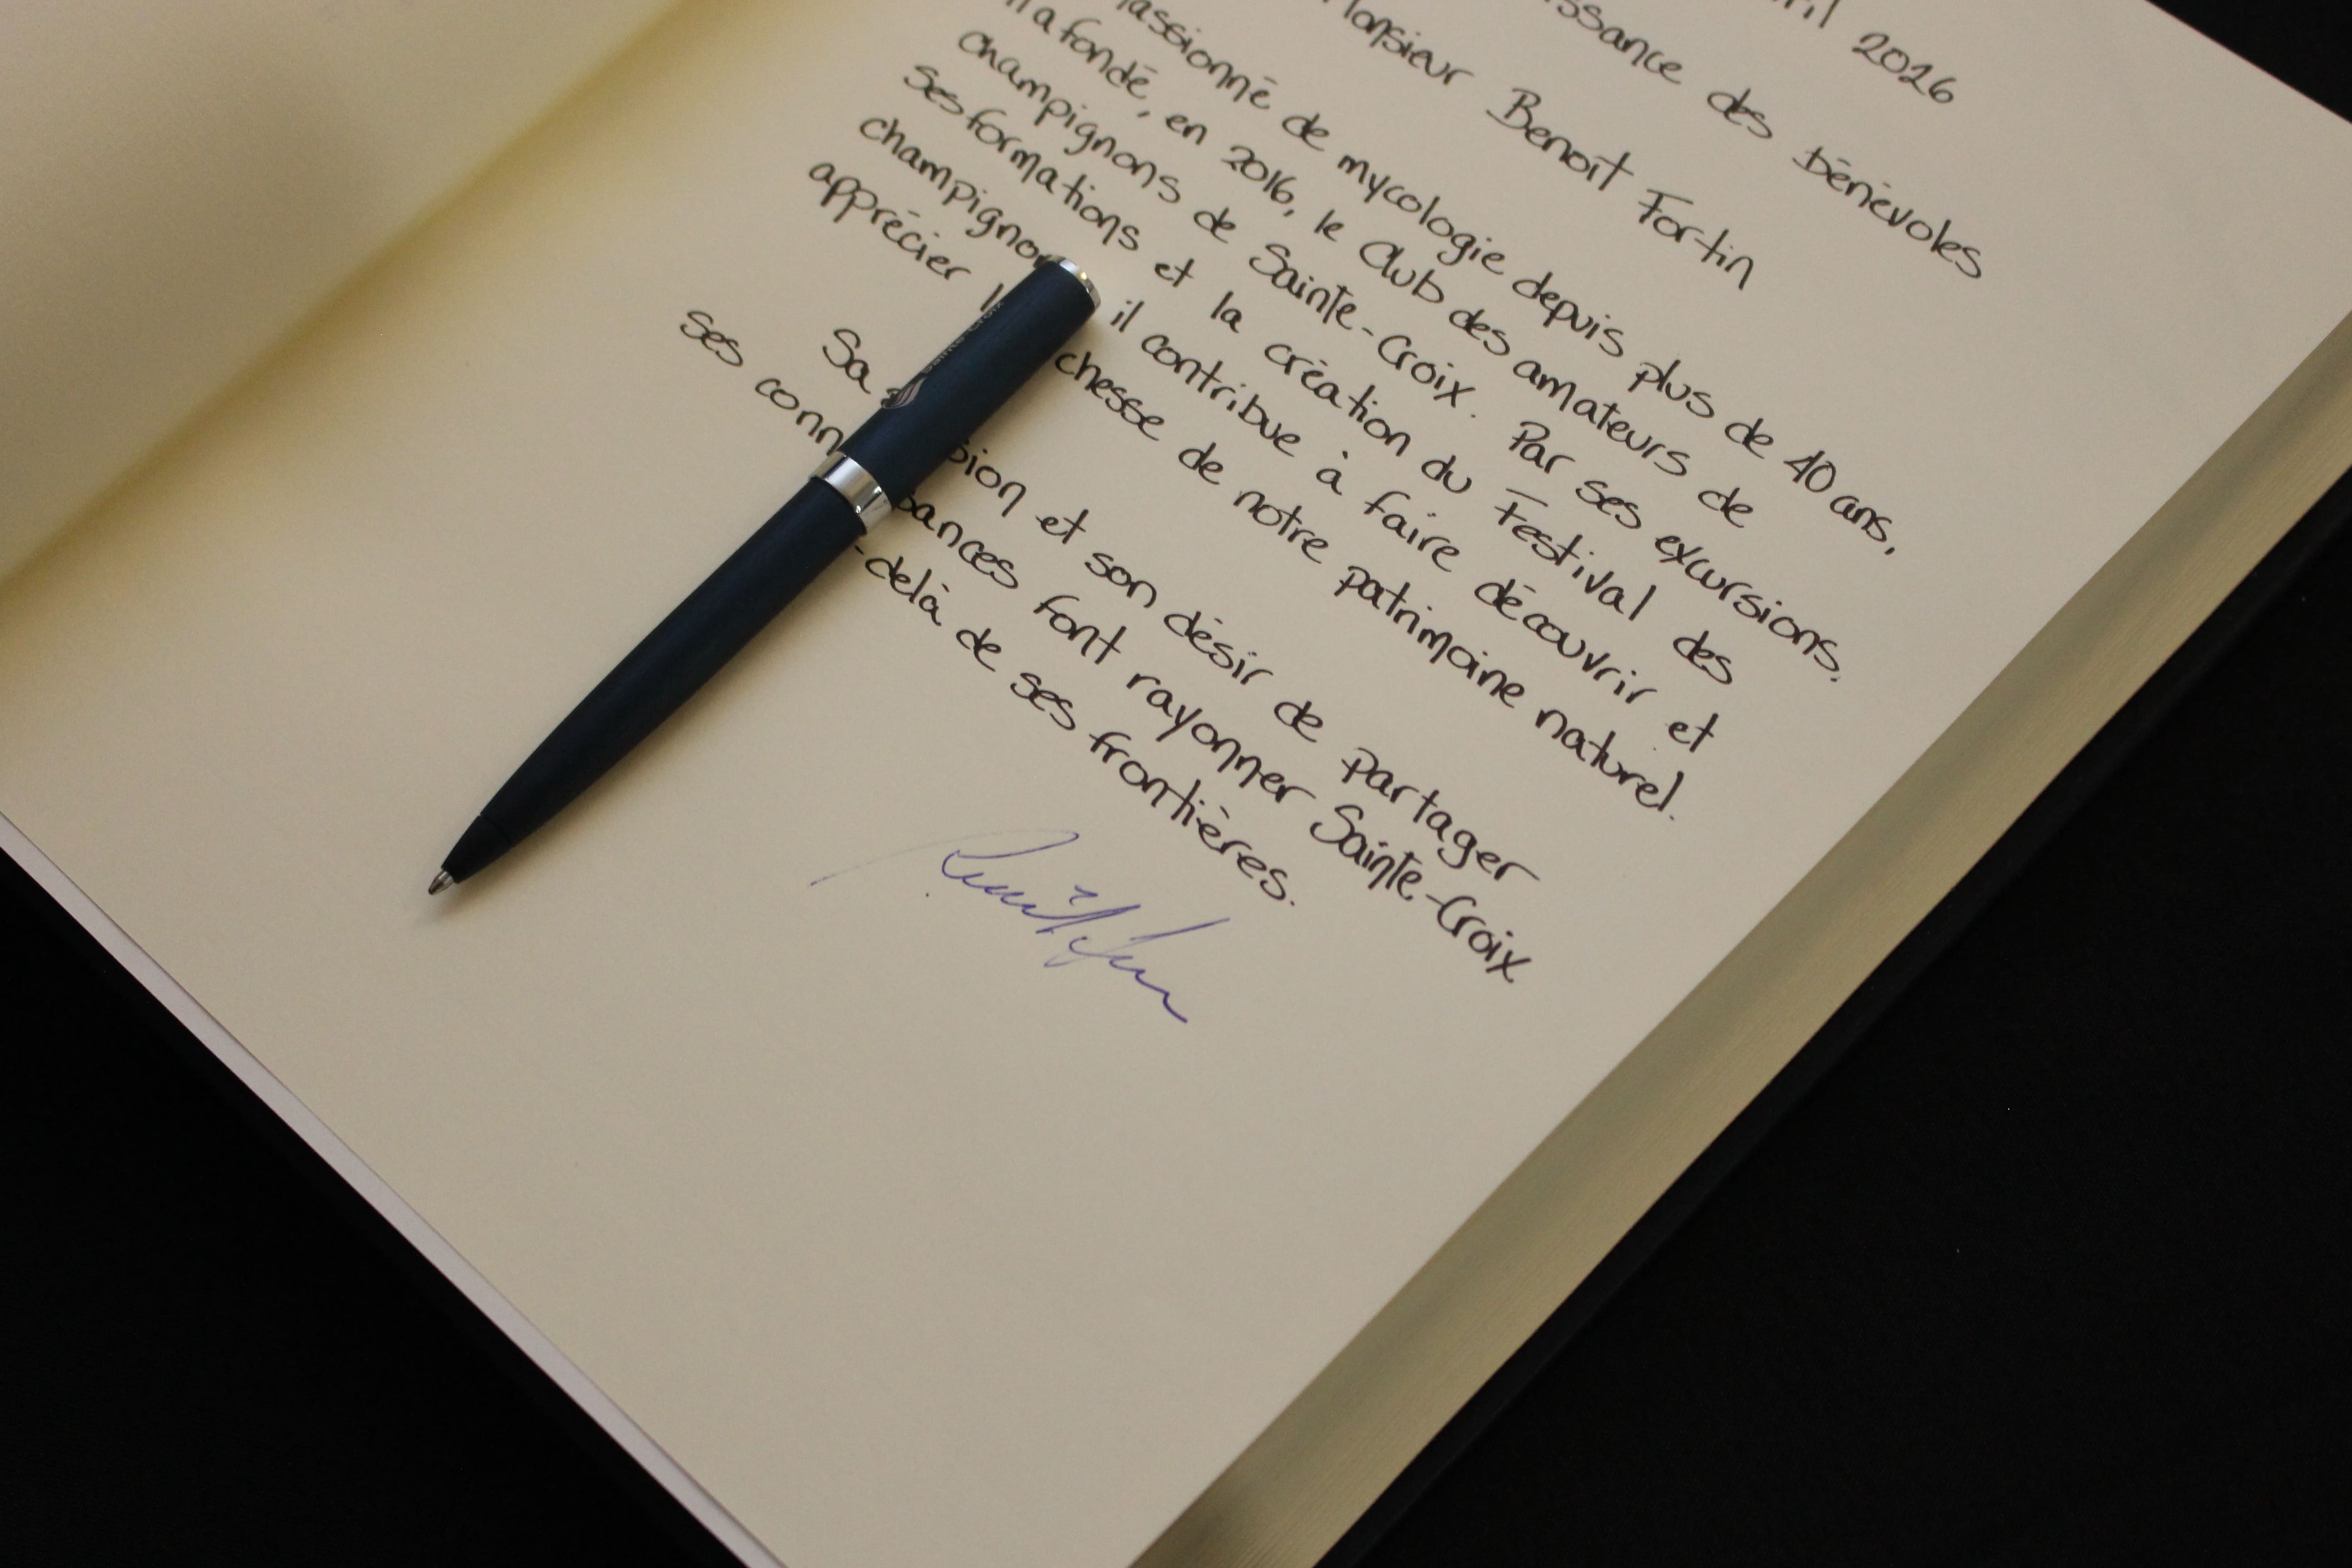 ril 2026
issance des Bénévoles
Monsieur Benoit Fortin
Passionné de mycologie depuis plus de 40 ans,
il a fondé, en 2016, le Club des amateurs de
champignons de Sainte-Croix. Par ses excursions,
ses formations et la création du Festival des
champignon il contribue à faire découvrir et
apprécier l chesse de notre patrimoine naturel.
Sa sion et son désir de partager
ses conn sances font rayonner Sainte-Croix
-delà de ses frontières.